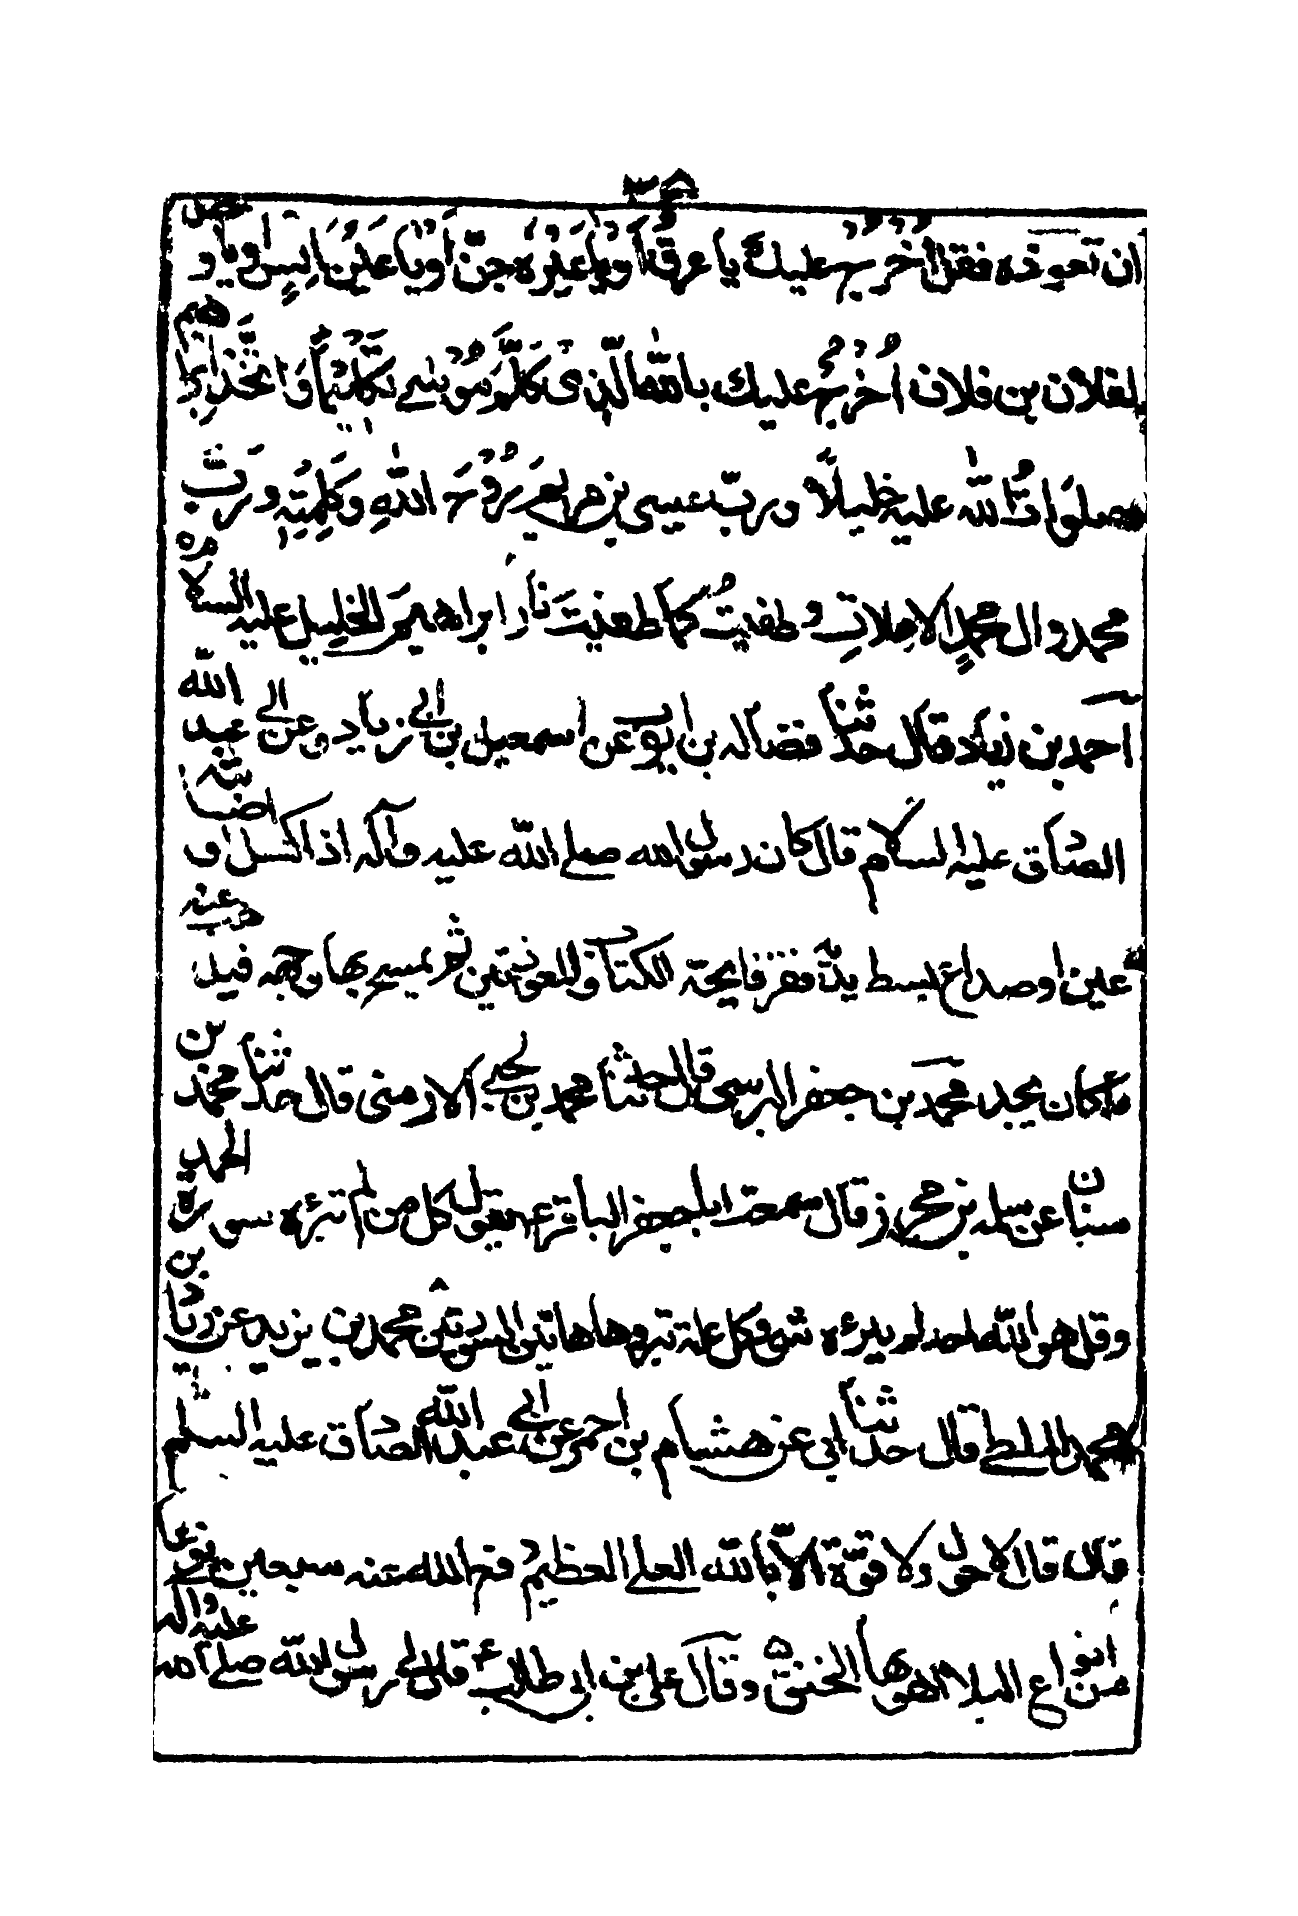 ان تعوذه فقل اُخْرُج عليك يا عرق أو يا عَيْن جنّ أو يا عين إنس و يا وجع
لفلان بن فلان اُخْرُج عليك بالله الذى كَلَّمَ موسى تكليماً وَاتَّخَذَ إبراهيم
صلوات الله عليه خليلاً و ربّ عيسى بن مريم رُوحَ اللهِ وَكَلِمَتِهِ وربّ
محمد و ال محمد الا هدات و طفيت كما طفيت نار ابراهيم الخليل عليه السلام
احمد بن زياد قال حدثنا فضاله بن ايوب عن اسمعيل بن ابي زياد عن ابي عبد الله
الصادق عليه السلام قال كان رسول الله صلى الله عليه وآله اذا كسل او اصابته
عين او صداع بسط يديه فقرء فاتحة الكتاب والمعوذتين ثم يمسح بها وجهه فيذهب عنه
ما كان يجد محمد بن جعفر البرسى قال حدثنا محمد بن يحيى الارمنى قال حدثنا محمد بن
سنان عن سلمه بن محرز قال سمعت ابا جعفر الباقر ع يقول كل من لم تبرءه سورة الحمد
وقل هو الله احد لم يبرءه شى وكل علة تبرءها هاتين السورتين محمد بن يزيد عن زياد بن
محمد الملطى قال حدثنا ابى عن هشام بن احمر عن ابي عبد الله الصادق عليه السلم
قال من قال لا حول ولا قوة الا بالله العلى العظيم دفع الله عنه سبعين نوعا
من انواع البلاء اهونها الخنق و قال على بن ابى طالب ع قال لى رسول الله صلى الله عليه واله